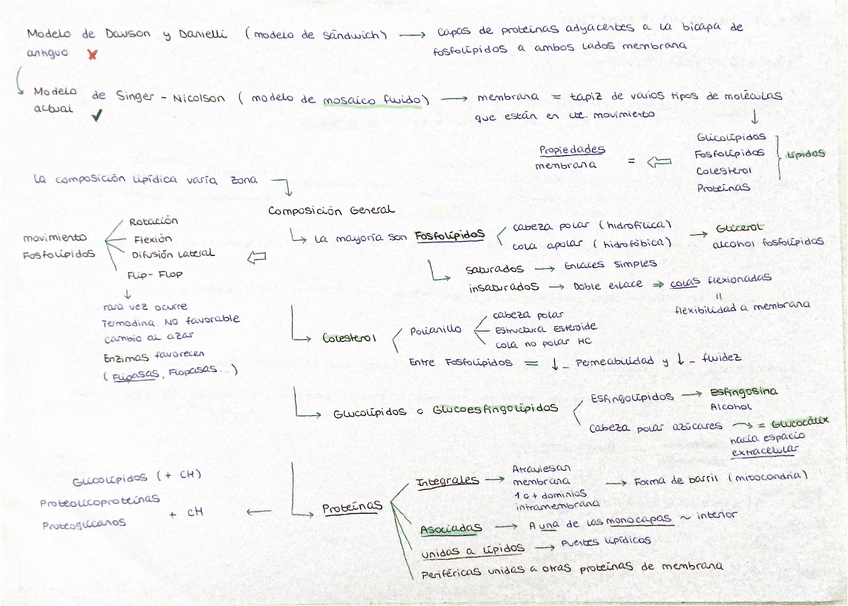 Modelo de Dawson y Danielli (modelo de sándwich) → capas de proteínas adyacentes a la bicapa de
antiguo ✗ fosfolípidos a ambos lados membrana
Modelo de Singer - Nicolson (modelo de mosaico fluido) → membrana = tapiz de varios tipos de moléculas
actual ✓ que están en movimiento
Glicolípidos
Fosfolípidos
Colesterol
Proteínas
Lípidos
Propiedades
membrana =
La composición lipídica varía zona
Composición General
La mayoría son Fosfolípidos
cabeza polar (hidrofílica)
cola apolar (hidrofóbica)
→ Glicerol
alcohol fosfolípidos
saturados → Enlaces simples
insaturados → Doble enlace ⇒ colas flexionadas
=
flexibilidad a membrana
movimiento
Fosfolípidos
Rotación
Flexión
Difusión lateral
Flip-Flop
rara vez ocurre
Termodina. NO favorable
cambio al azar
Enzimas favorecen
(Flipasas, Flopasas...)
Colesterol
Polianillo
cabeza polar
Estructura esteroide
cola no polar HC
Entre Fosfolípidos = ↓ Permeabilidad y ↓ fluidez
Glucolípidos o Glucoesfingolípidos
Esfingolípidos → Esfingosina
Alcohol
Cabeza polar azúcares → = Glucocálix
hacia espacio
extracelular
Proteínas
Integrales →
Atraviesan
membrana
1 o + dominios
intramembrana
→ Forma de barril (mitocondria)
Asociadas → A una de las monocapas ~ interior
unidas a lípidos → Puentes lipídicos
Periféricas unidas a otras proteínas de membrana
Glucolípidos (+ CH)
Proteolicoproteínas
Proteoglicanos
+ CH